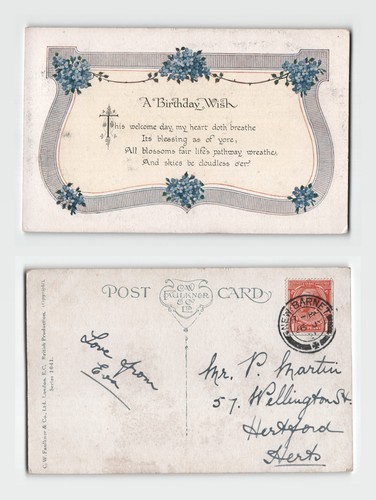 A Birthday Wish
This welcome day, my heart doth breathe
Its blessing as of yore,
All blossoms fair life's pathway wreathe,
And skies be cloudless o'er!
POST CARD
C.W.
FAULKNER
& Co
Ltd
NEW BARNET
Love from
Eva
Mr. P. Martin
57, Wellington St.
Hertford
Herts
C. W. Faulkner & Co., Ltd., London, E.C. British Production. Copyright.
Series 1641.